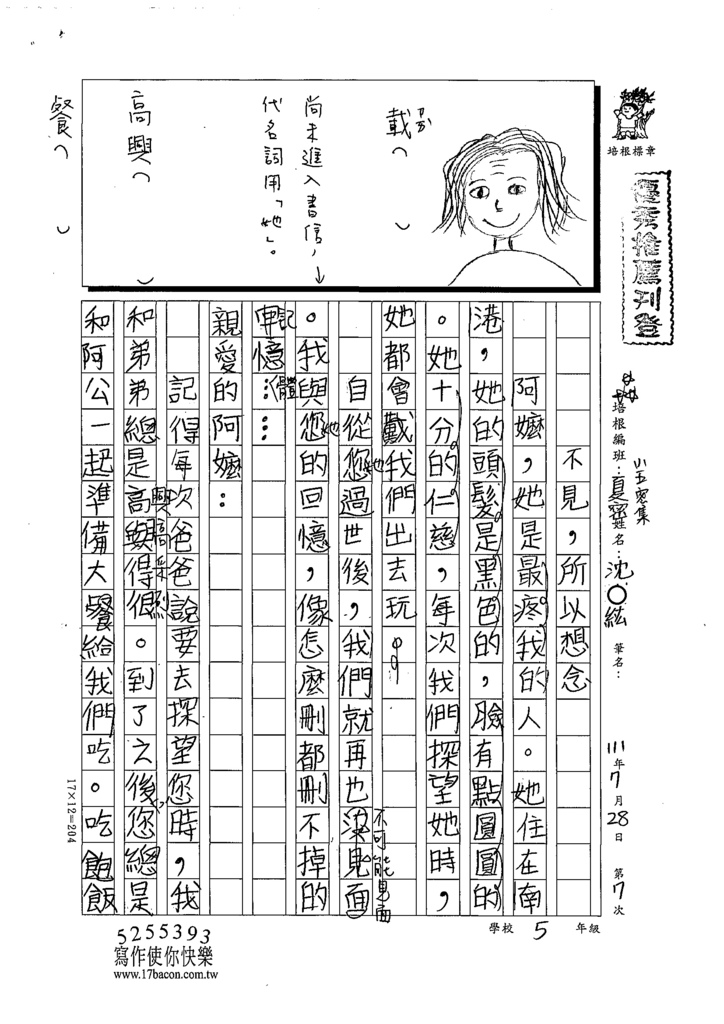 培根標章
優秀推薦刊登
培根編班：小五密集
夏密
姓名：沈〇紘
筆名：
111年7月28日 第7次
學校 5 年級
載（ ）
尚未進入書信，
代名詞用「她」。
高興（ ）
餐（ ）
不見，所以想念
阿嬤，她是最疼我的人。她住在南
港，她的頭髮是黑色的，臉有點圓圓的
。她十分的仁慈，每次我們探望她時，
她都會戴我們出去玩。
自從您她過世後，我們就再也沒見面不可能見面
。我與您她的回憶，像怎麼刪都刪不掉的
記憶體……
親愛的阿嬤：
記得每次爸爸說要去探望您時，我
和弟弟總是高興得很興高采烈。到了之後，您總是
和阿公一起準備大餐給我們吃。吃飽飯
17×12=204
5255393
寫作使你快樂
www.17bacon.com.tw